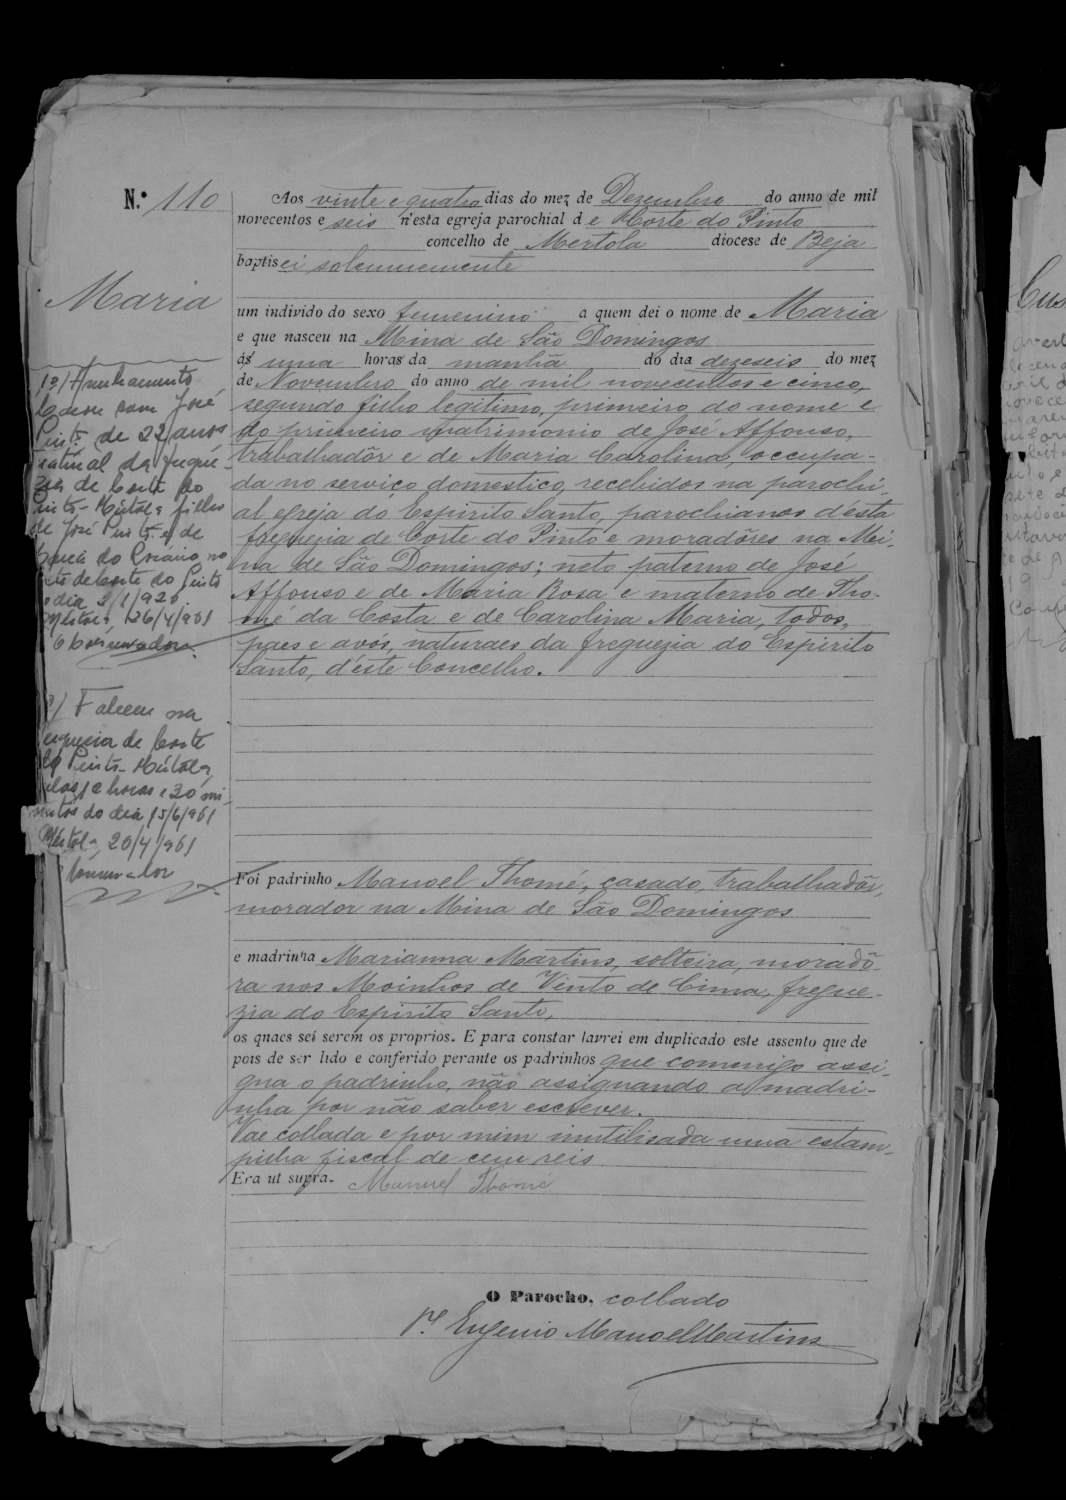 N.º 110
Maria
Aos vinte e quatro dias do mez de Dezembro do anno de mil
novecentos e seis n'esta egreja parochial de Corte do Pinto
concelho de Mertola diocese de Beja
baptisei solemnemente
um individo do sexo femenino a quem dei o nome de Maria
e que nasceu na Mina de São Domingos
ás uma horas da manhã do dia dezeseis do mez
de Novembro do anno de mil novecentos e cinco,
segundo filho legitimo, primeiro do nome e
do primeiro matrimonio de José Affonso,
trabalhadôr e de Maria Carolina, occupa-
da no serviço domestico, recebidos na parochi-
al egreja do Espirito Santo, parochianos d'esta
freguezia de Corte do Pinto e moradôres na Mi-
na de São Domingos; neto paterno de José
Affonso e de Maria Rosa e materno de Tho-
mé da Costa e de Carolina Maria, todos,
paes e avós, naturaes da freguezia do Espirito
Santo, d'este Concelho.
Foi padrinho Manoel Thomé, casado, trabalhadôr,
morador na Mina de São Domingos
e madrinha Marianna Martins, solteira, moradô-
ra nos Moinhos de Vento de Cima, fregue-
zia do Espirito Santo,
os quaes sei serem os proprios. E para constar lavrei em duplicado este assento que de
pois de ser lido e conferido perante os padrinhos que comigo assi-
gna o padrinho, não assignando a madri-
nha por não saber escrever.
Vae collada e por mim inutilisada uma estam-
pilha fiscal de cem reis
Era ut supra. Manuel Thomé
O Parocho, collado
P.e Eugenio Manoel Martins
1º) Averbamento
Casou com José
Pinto de 22 anos
natural da fregue-
zia de Corte do
Pinto - Mértola filho
de José Pinto e de
do Rosário, no
de Corte do Pinto
dia 2/1/926
Mértola, 26/4/961
O Conservador
2) Faleceu na
freguesia de Corte
do Pinto - Mértola,
pelas horas e 30 mi-
nutos do dia 15/6/961
Mértola, 20/4/961
Conservador